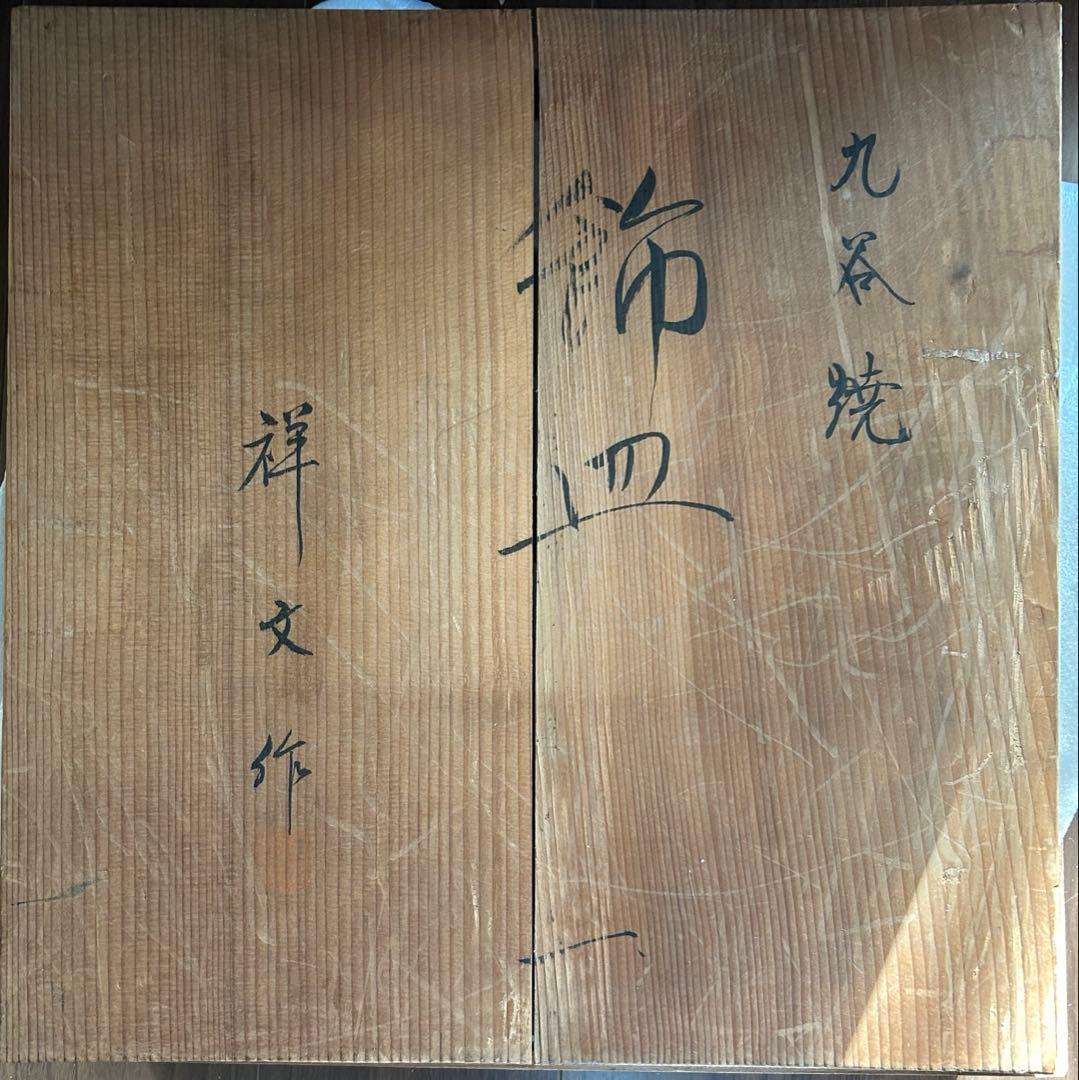 九谷焼
飾皿
祥文作